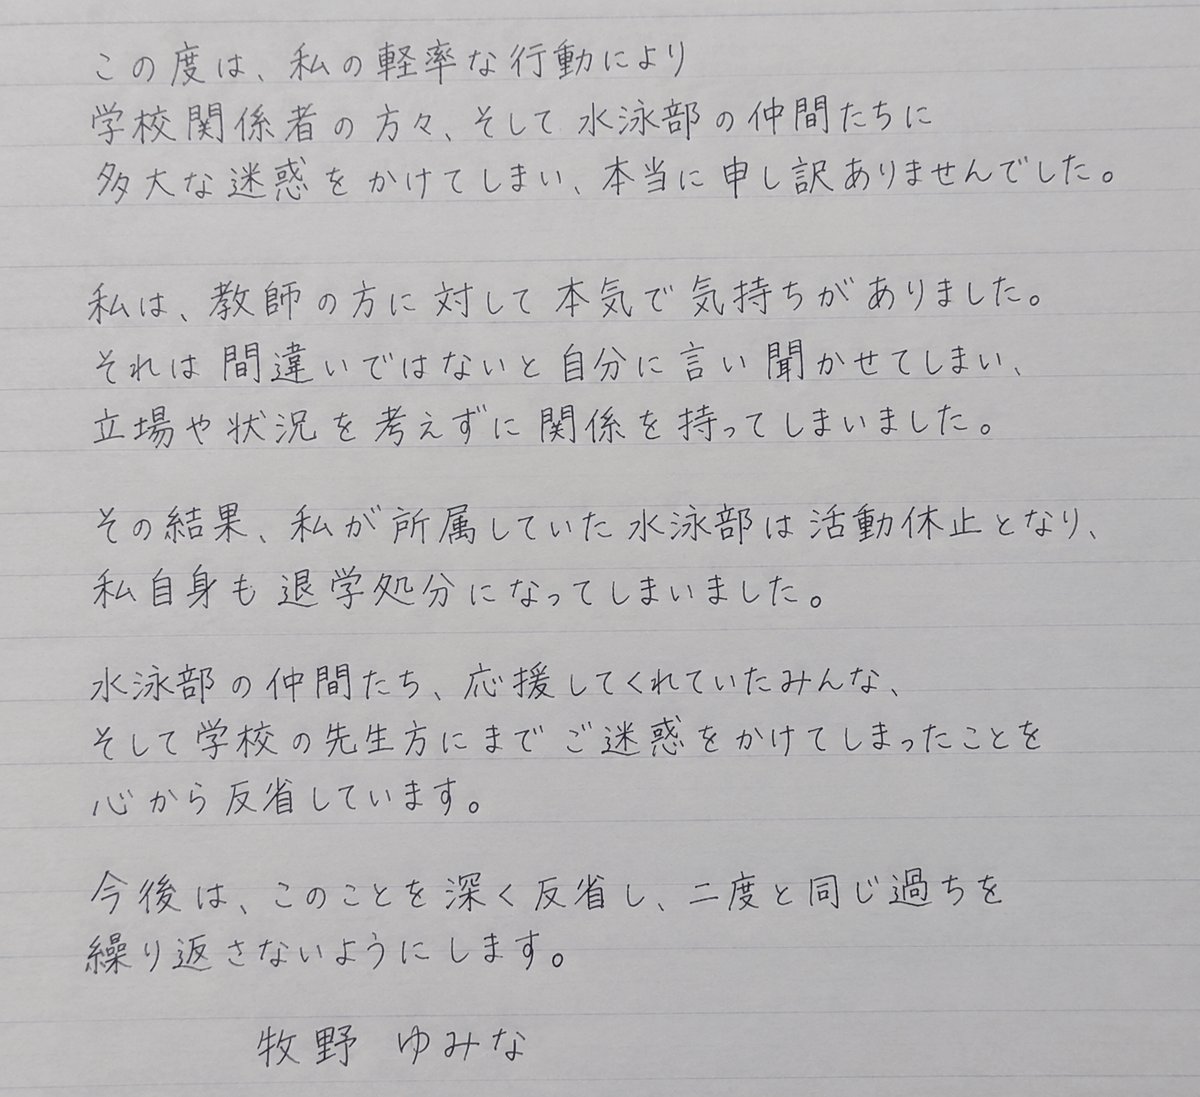 この度は、私の軽率な行動により
学校関係者の方々、そして水泳部の仲間たちに
多大な迷惑をかけてしまい、本当に申し訳ありませんでした。
私は、教師の方に対して本気で気持ちがありました。
それは間違いではないと自分に言い聞かせてしまい、
立場や状況を考えずに関係を持ってしまいました。
その結果、私が所属していた水泳部は活動休止となり、
私自身も退学処分になってしまいました。
水泳部の仲間たち、応援してくれていたみんな、
そして学校の先生方にまでご迷惑をかけてしまったことを
心から反省しています。
今後は、このことを深く反省し、二度と同じ過ちを
繰り返さないようにします。
牧野 ゆみな